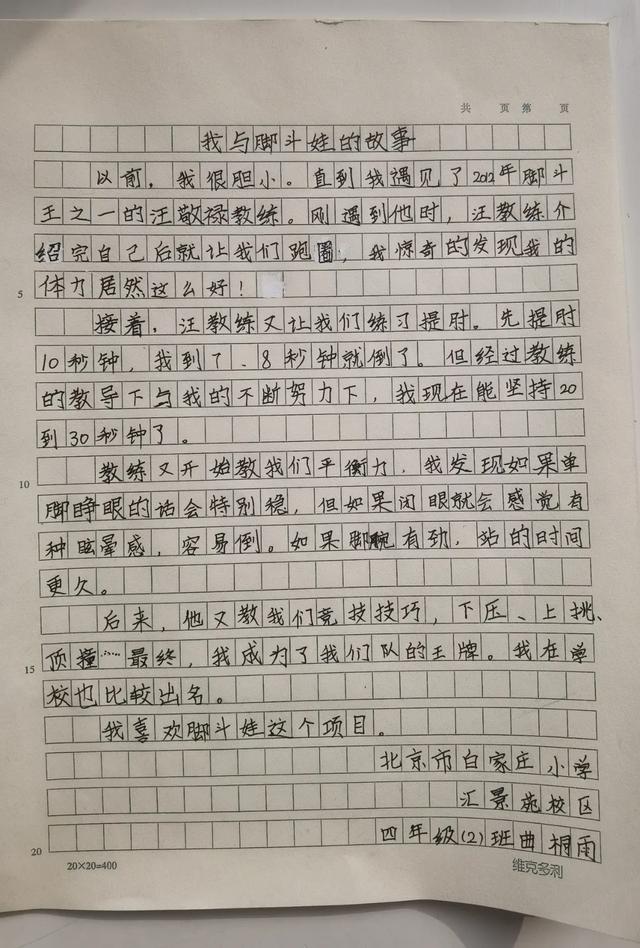 共 页 第 页
我与脚斗娃的故事
以前，我很胆小。直到我遇见了2012年脚斗
王之一的汪敬禄教练。刚遇到他时，汪教练介
绍完自己后就让我们跑圈，我惊奇的发现我的
5 体力居然这么好！
接着，汪教练又让我们练习提肘。先提肘
10秒钟，我到7、8秒钟就倒了。但经过教练
的教导下与我的不断努力下，我现在能坚持20
到30秒钟了。
10 教练又开始教我们平衡力，我发现如果单
脚睁眼的话会特别稳，但如果闭眼就会感觉有
种眩晕感，容易倒。如果脚腕有劲，站的时间
更久。
后来，他又教我们竞技技巧，下压、上挑、
15 顶撞……最终，我成为了我们队的王牌。我在学
校也比较出名。
我喜欢脚斗娃这个项目。
北京市白家庄小学
汇景苑校区
20 四年级(2)班曲桐雨
20×20=400 维克多利